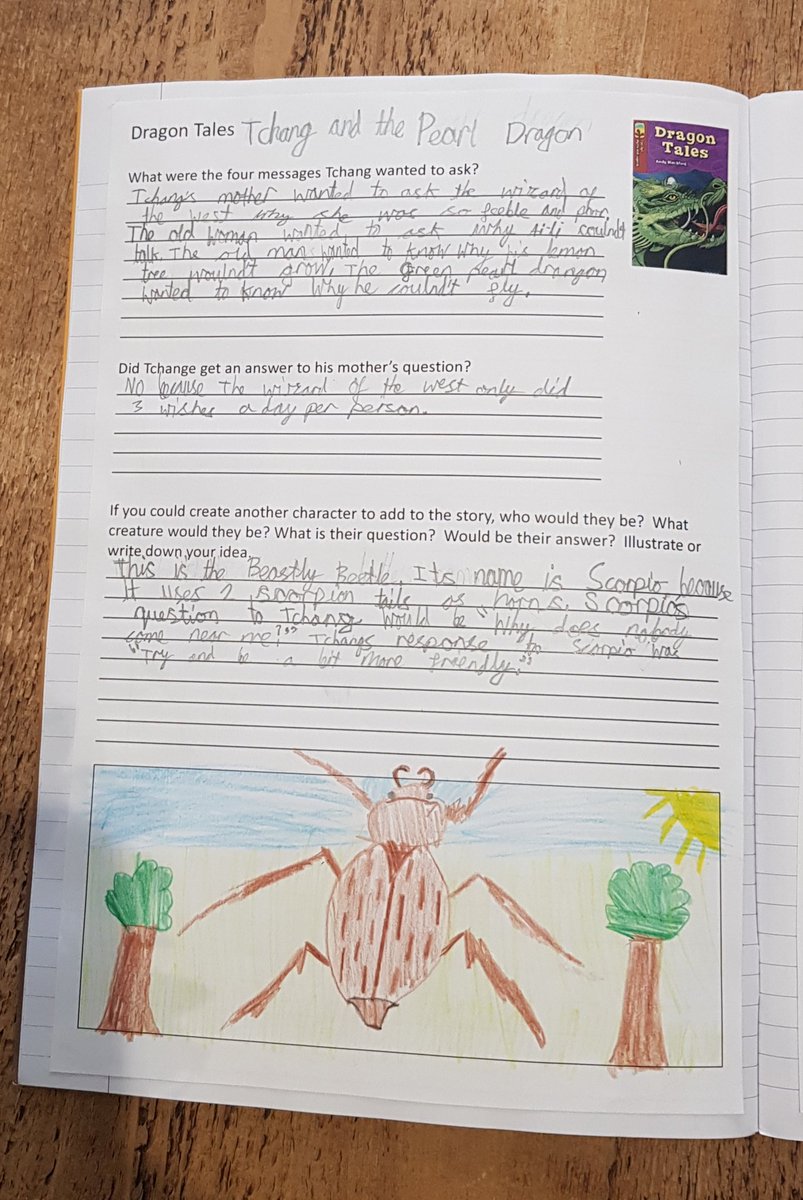 Dragon Tales Tchang and the Pearl Dragon
Dragon
Tales
What were the four messages Tchang wanted to ask?
Tchang's mother wanted to ask the wizard of
the west why she was so feeble and poor,
The old woman wanted to ask why Ai-li couldn't
talk. The old man wanted to know why his lemon
tree wouldn't grow. The Green pearl drangon
wanted to know why he couldn't fly.
Did Tchange get an answer to his mother's question?
No because the wizard of the west only did
3 wishes a day per person.
If you could create another character to add to the story, who would they be? What
creature would they be? What is their question? Would be their answer? Illustrate or
write down your idea.
This is the Beastly Beetle. Its name is Scorpio because
it uses 2 scorpion tails as horns. Scorpios
question to Tchang would be "Why does nobody
come near me?" Tchangs response to Scorpio was
"Try and be a bit more friendly."